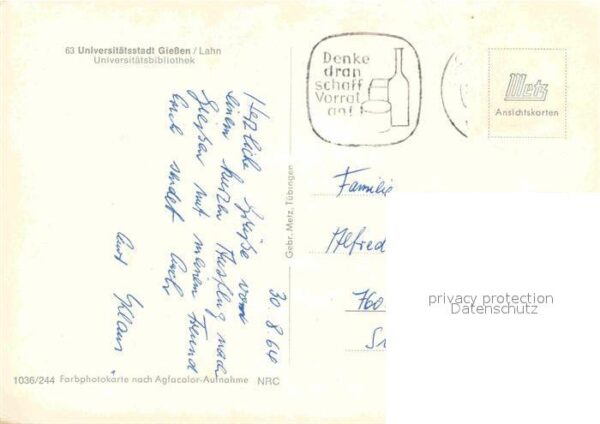 63 Universitätsstadt Gießen / Lahn
Universitätsbibliothek
Denke
dran
schaff
Vorrat
an!
Metz
Ansichtskarten
Gebr. Metz, Tübingen
30.8.64
Herzliche Grüße von
einem kurzen Ausflug nach
Gießen mit meinem Freund
sendet Euch
Klaus
Familie
Alfred
760
privacy protection
Datenschutz
1036/244 Farbphotokarte nach Agfacolor-Aufnahme NRC